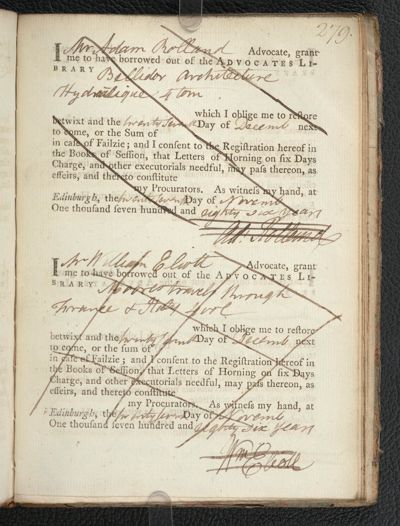 279.
I Mr. Adam Rolland Advocate, grant
me to have borrowed out of the ADVOCATES LI-
BRARY Bellidor Architecture
Hydraulique 4 tom
which I oblige me to restore
betwixt and the twenty seventh Day of Decemb next
to come, or the Sum of
in case of Failzie; and I consent to the Registration hereof in
the Books of Session, that Letters of Horning on six Days
Charge, and other executorials needful, may pass thereon, as
effeirs, and thereto constitute
my Procurators. As witness my hand, at
Edinburgh, the twenty seventh Day of Novemb
One thousand seven hundred and eighty six years
Ad. Rolland
I Mr William Elliott Advocate, grant
me to have borrowed out of the ADVOCATES LI-
BRARY Moore's travels through
France &
which I oblige me to restore
betwixt and the twenty seventh Day of Decemb next
to come, or the sum of
in case of Failzie; and I consent to the Registration hereof in
the Books of Session, that Letters of Horning on six Days
Charge, and other executorials needful, may pass thereon, as
effeirs, and thereto constitute
my Procurators. As witness my hand, at
Edinburgh, the twenty seventh Day of Novemb
One thousand seven hundred and eighty six years
Wm